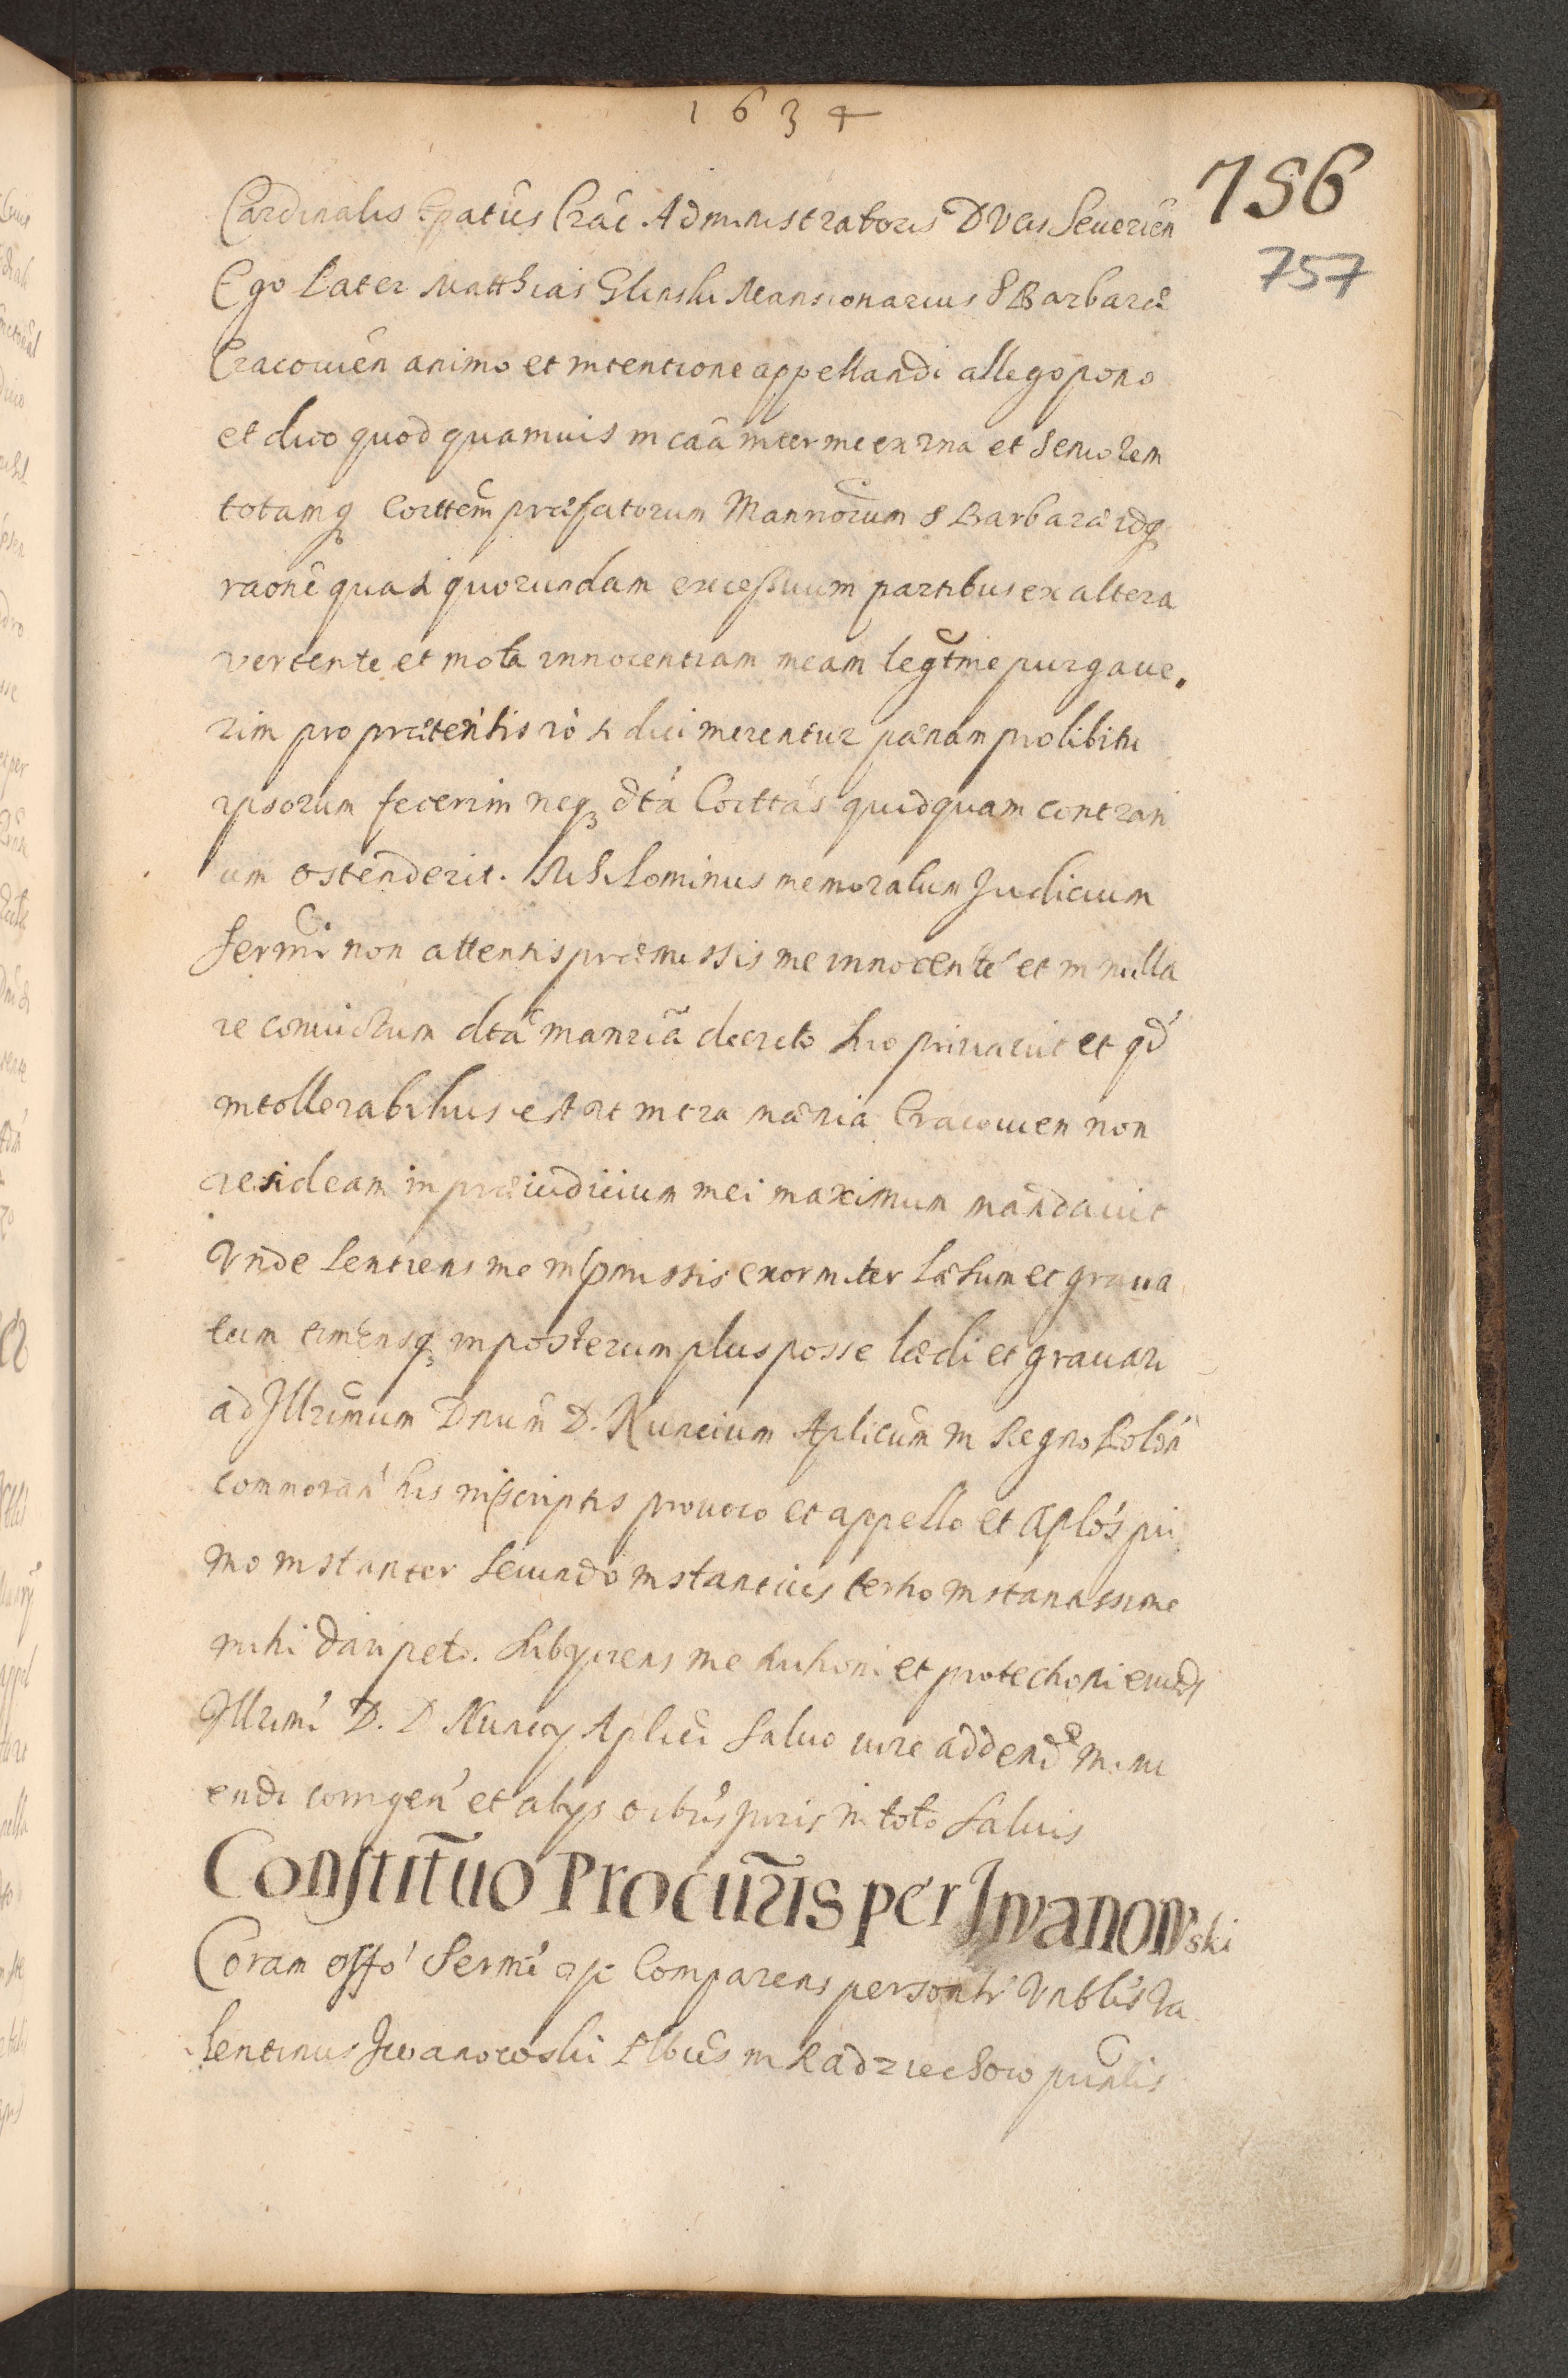 1634
756
757
Cardinalis Epatûs Crac̃ Administratoris Ducis Seuerien̄
Ego Pater Matthias Glinski Mansionarius S Barbaræ
Cracouien̄ animo et intentione appellandi allego pono
et dico quod quamuis in cāā inter me ex vna et Seniorem
totamq₃ Coittem̄ præfatorum Mannorum̄ S Barbaræ idq₃
raone quasi quorundam excessuum partibus ex altera
vertente et mota innocentiam meam legtme purgaue-
rim pro prætentis si dici merentur pænam pro libitu
ipsorum fecerim neq₃ dta Coittas quidquam contrari
um ostenderit. Nihilominus memoratum Judicium
Sermi non attentis præmissis me innocente et in nulla
re conuictum dta manria decreto suo priuauit et qd
intollerabilius est vt intra mænia Cracouien non
resideam in præiudicium mei maximum mandauit
Vnde sentiens me in pmissis enormiter læsum et graua
tum timensq₃ in posterum plus posse lædi et grauari
ad Illrimum Dnum D. Nuncium Aplicum in Regno Polon
commoran his in scriptis prouoco et appello et aplos pri
mo instanter secundo instantius tertio instantissime
mihi dari peto. Subijciens me tuitioni et protectioni eiusd
Illrimi D. D Nuncij Aplici saluo iure addendi minu
endi corrigen et alijs oibus juris in toto saluis
Constitũo Procũris per Jwanowski
Coram offo Sermi &c Comparens personlr Vnblis Va
lentinus Jwanowski Albus in Radziechow prinlis